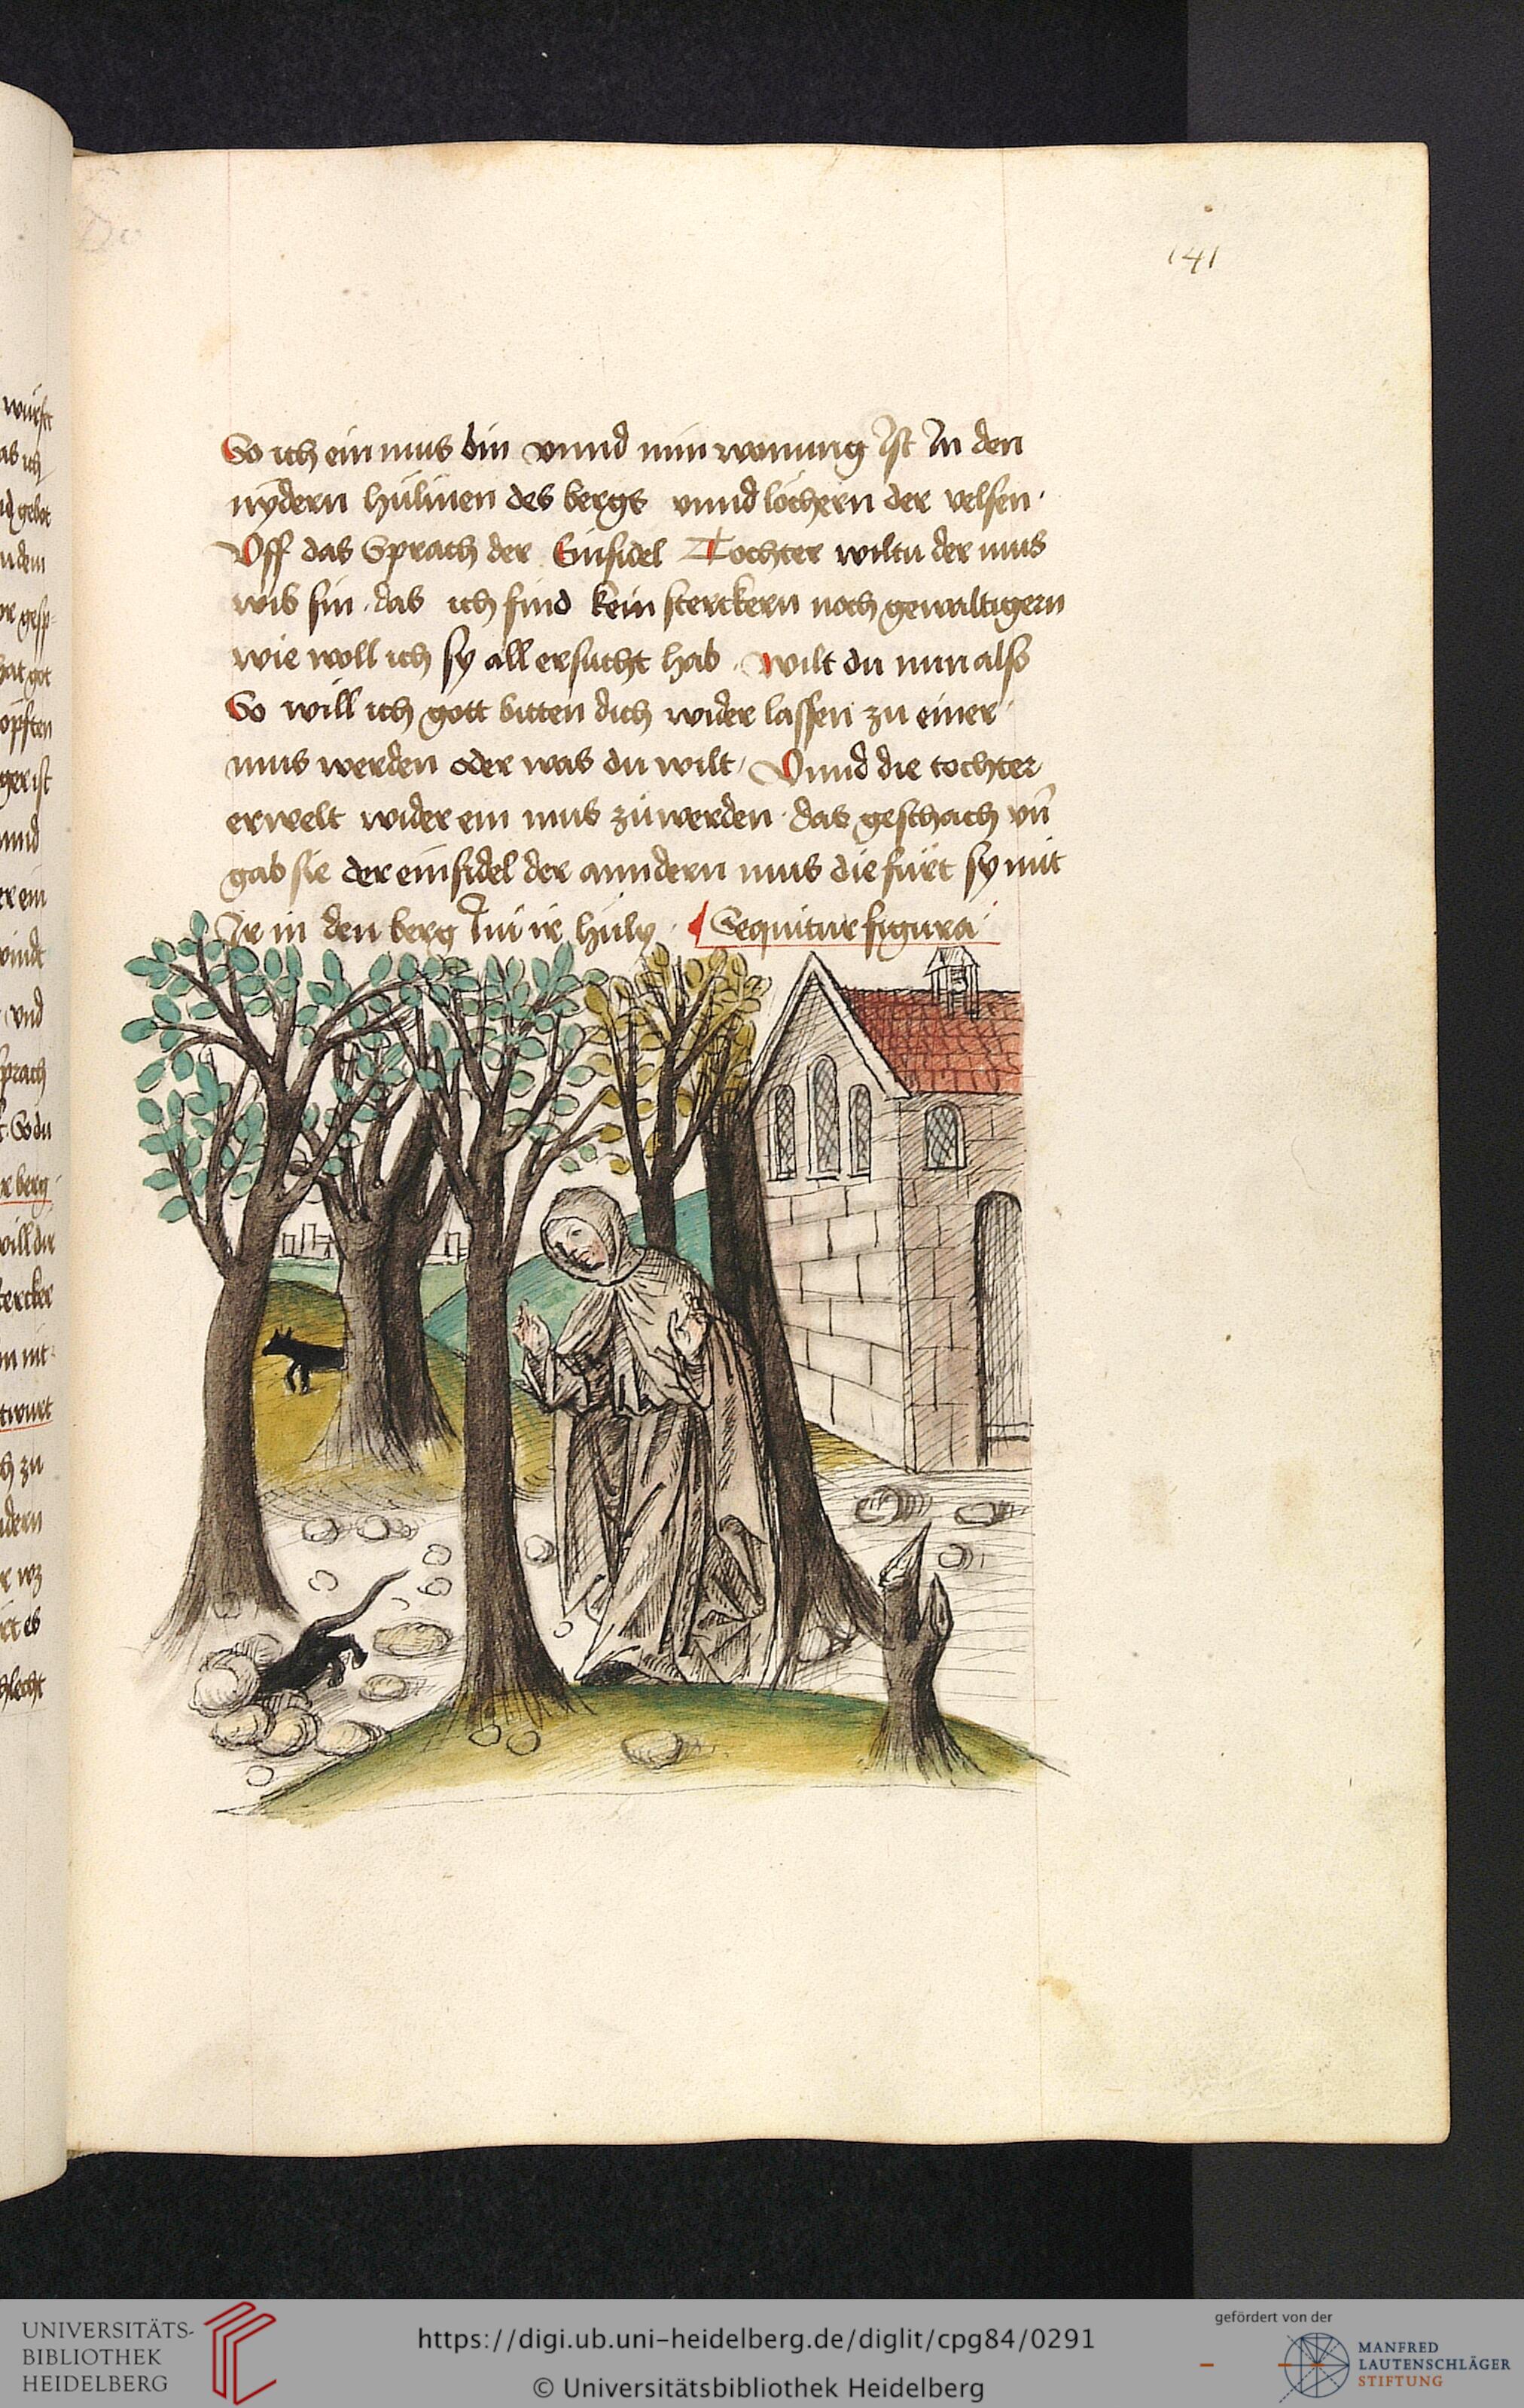 141
So ich ein mus bin vnnd min wonung Ist In den
nydern hülinen des bergs vnnd löchern der velsen.
Vff das Sprach der Einsidel Tochter wiltu der mus
wib sin. das ich find kein sterckern noch gewaltigern
wie woll ich sy all ersucht hab. wilt du nun also
So will ich gott bitten dich wider lassen zu einer
mus werden oder was du wilt, Vnnd die tochter
erwelt wider ein mus zu werden. das geschach vn̄
gab sie der einsidel der anndern mus die fürt sy mit
Ir in den berg Inn ir hüly. Sequitur figura
würst
as ich
id gebot
n dem
hat got
öpften
ger ist
nnd
er ein
wind
vnd
sprach
So du
r berg
will die
stercker
m nit
twurt
h zu
ndern
ict es
schlecht
UNIVERSITÄTS-
BIBLIOTHEK
HEIDELBERG
https://digi.ub.uni-heidelberg.de/diglit/cpg84/0291
© Universitätsbibliothek Heidelberg
gefördert von der
MANFRED
LAUTENSCHLÄGER
STIFTUNG